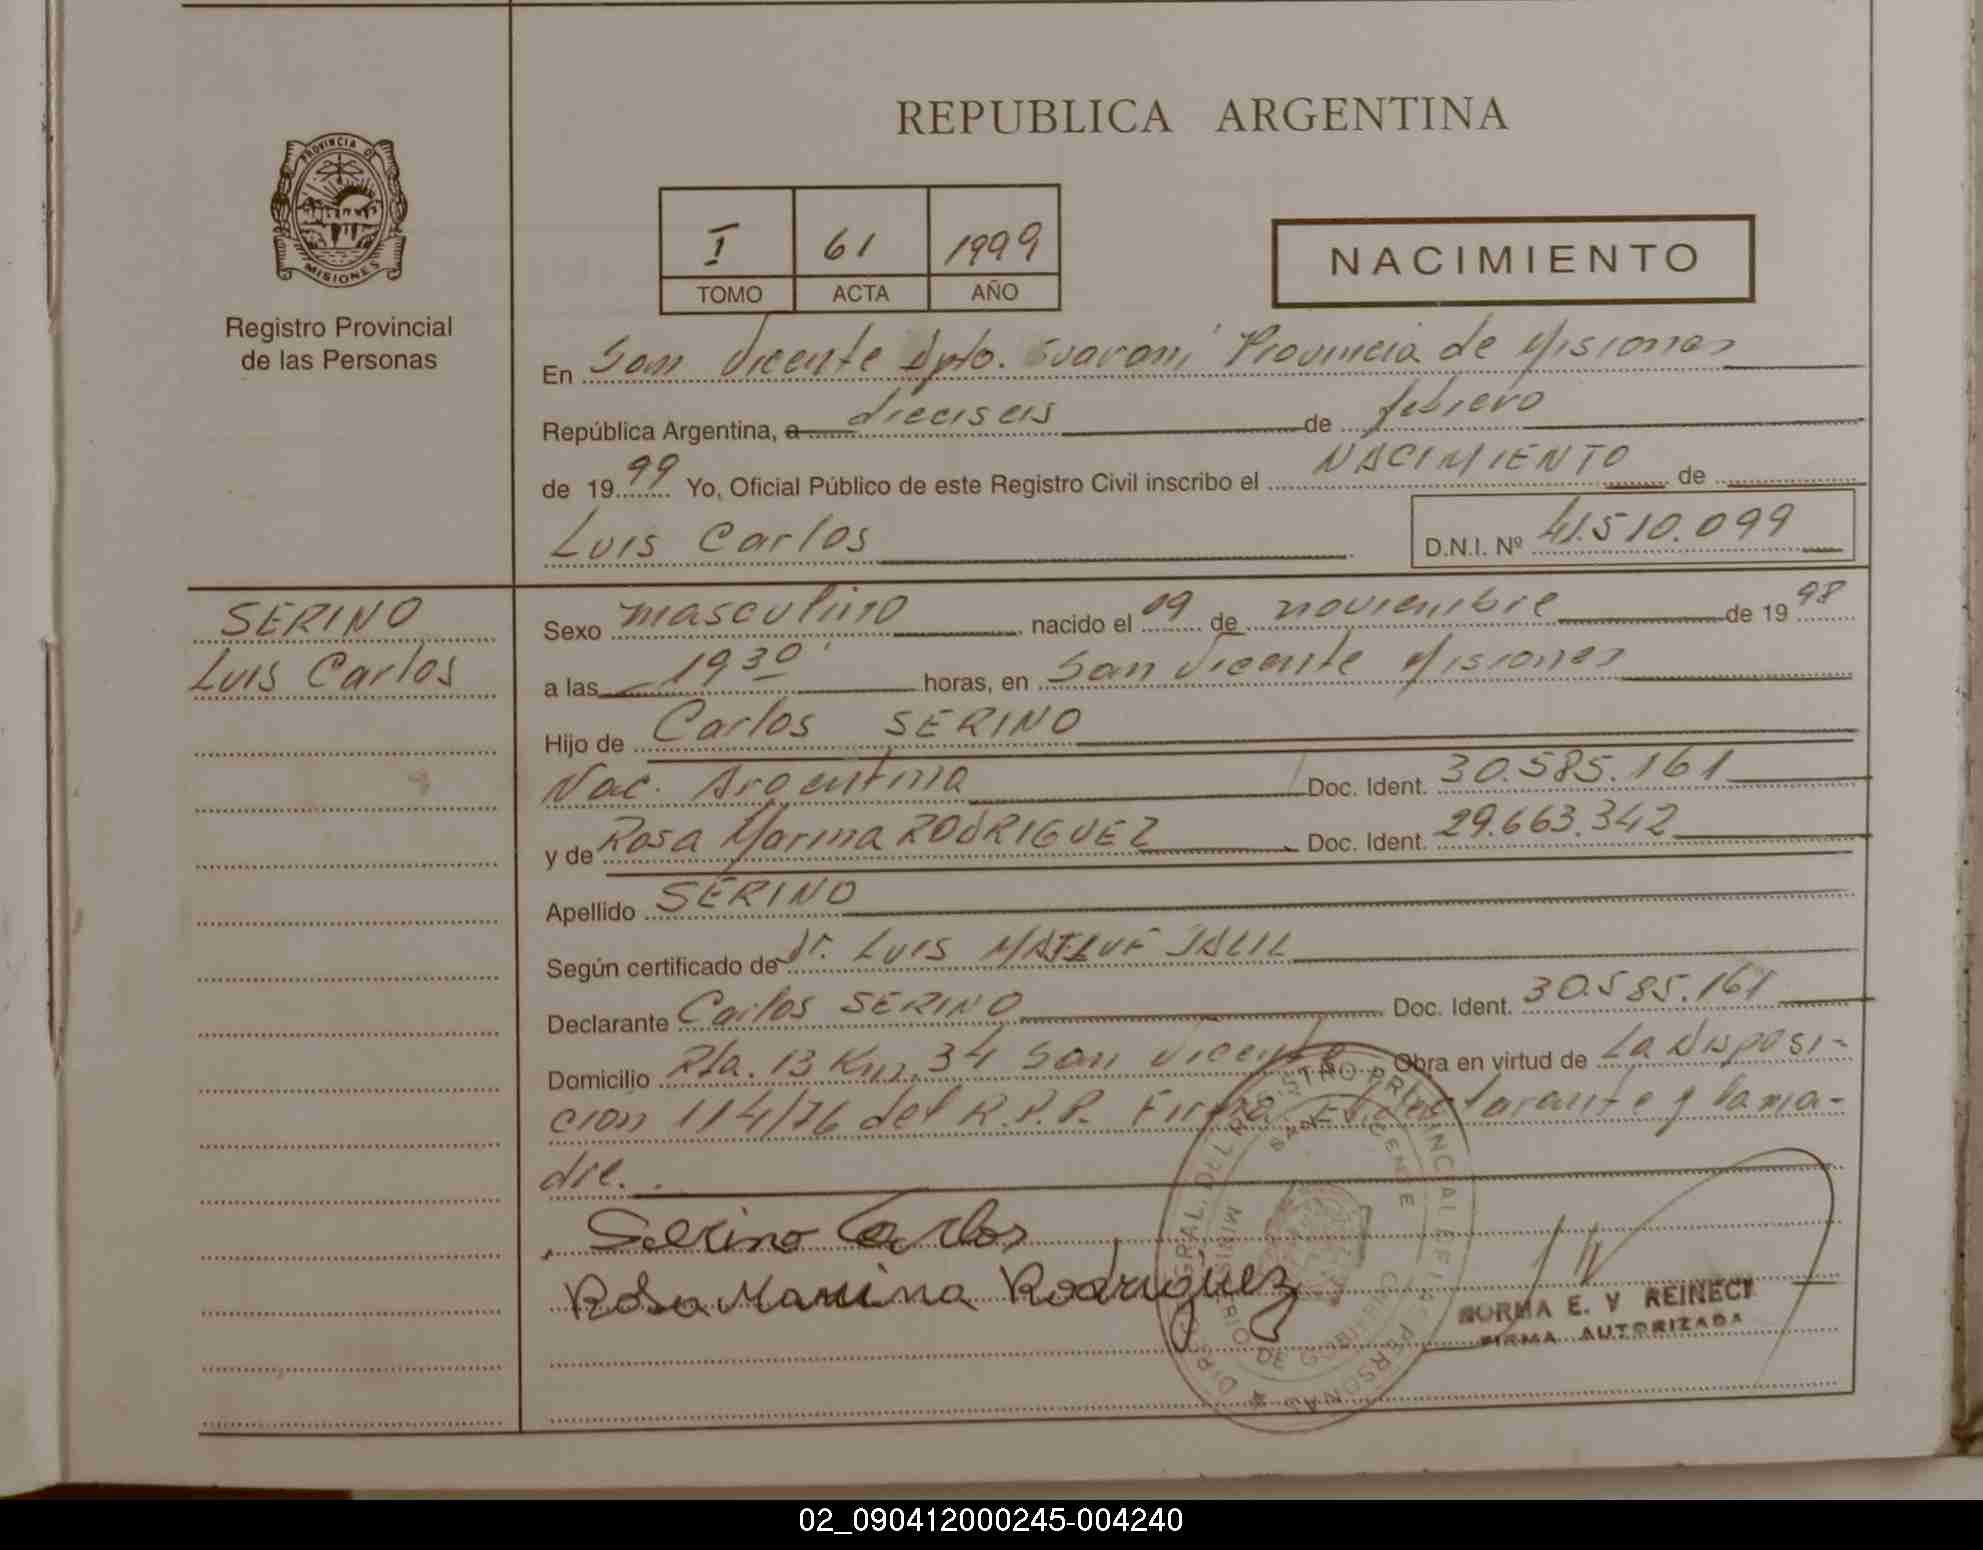 REPUBLICA ARGENTINA
PROVINCIA DE
MISIONES
Registro Provincial
de las Personas
I 61 1999
TOMO ACTA AÑO
NACIMIENTO
En San Vicente Dpto. Guaraní Provincia de Misiones
República Argentina, a dieciseis de febrero
de 1999 Yo, Oficial Público de este Registro Civil inscribo el NACIMIENTO de
Luis Carlos D.N.I. Nº 41.510.099
SERINO
Luis Carlos
Sexo masculino nacido el 09 de noviembre de 1998
a las 19 30' horas, en San Vicente Misiones
Hijo de Carlos SERINO
Nac. Argentina Doc. Ident. 30.585.161
y de Rosa Marina RODRIGUEZ Doc. Ident. 29.663.342
Apellido SERINO
Según certificado de Dr. LUIS JALIL
Declarante Carlos SERINO Doc. Ident. 30.585.161
Domicilio Rta. 13 Km. 34 San Vicente Obra en virtud de La Disposi-
cion 114/76 del R.P.P. Firma El declarante y la ma-
dre.
Serino Carlos
Rosa Marina Rodriguez
NORMA E. V REINECK
FIRMA AUTORIZADA
SAN VICENTE
02_090412000245-004240